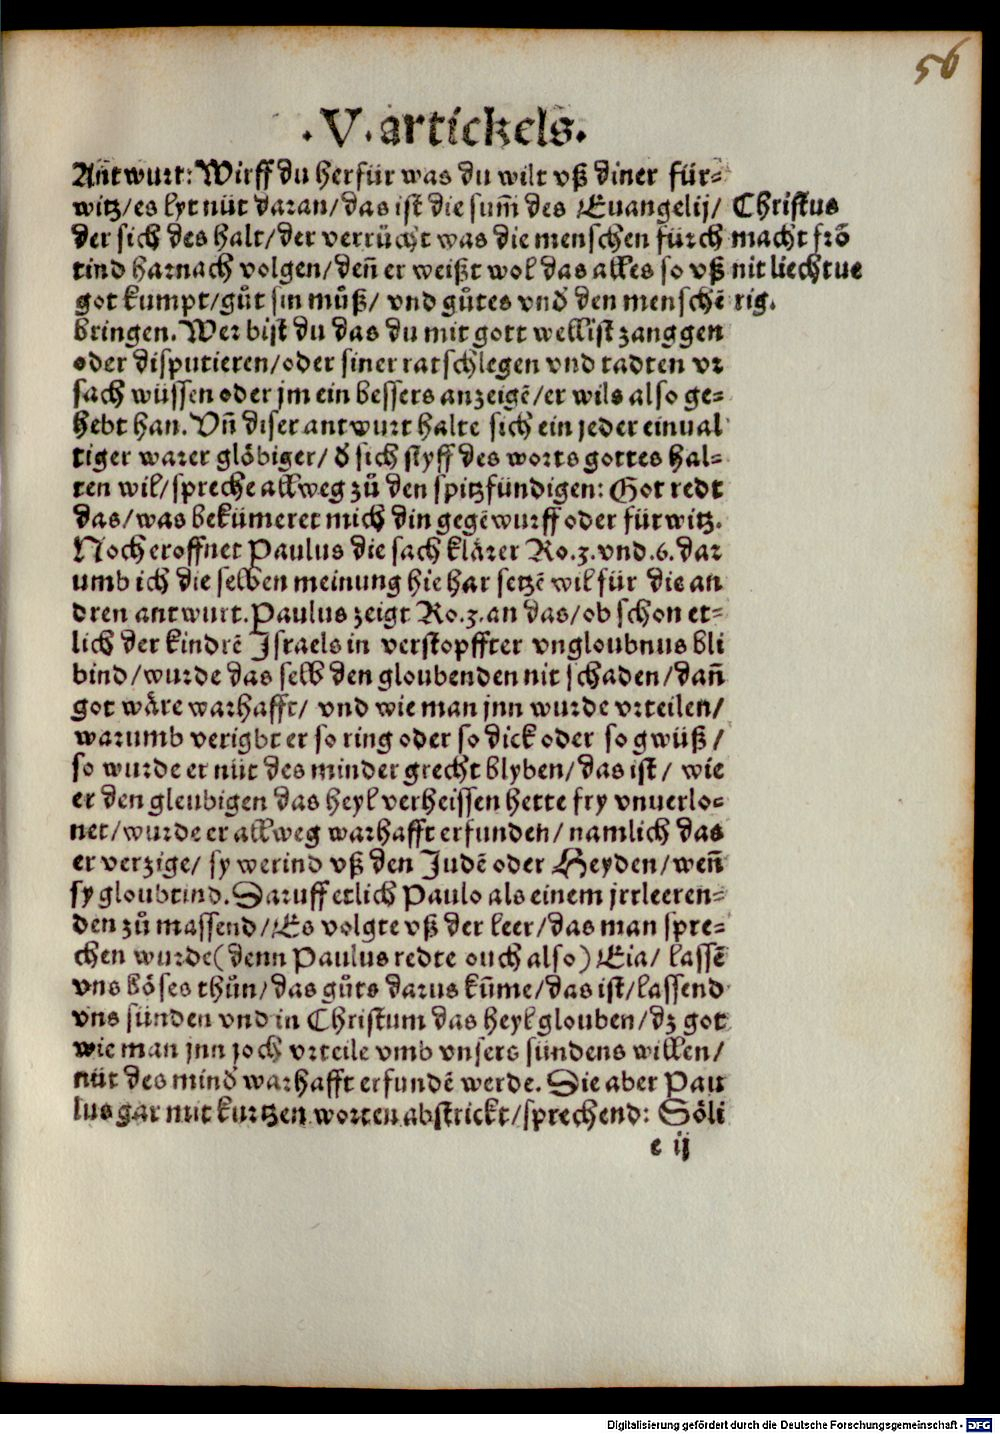 56
.V. artickels.
Añtwurt: Wirff du herfür was du wilt vß diner für⸗
witz/es lyt nüt daran/das ist die sum̃ des Euangelij/
der sich des halt/der verrücht was die menschen fürch
tind harnach volgen/deñ er weißt wol das alles so vß
got kumpt/gůt sin můß/ vnd gůtes vnd̕ den menschẽ
bringen. Wer bist du das du mit gott wellist zanggen
oder disputieren/oder siner ratschlegen vnd tadten vr
sach wüssen oder jm ein bessers anzeigẽ/er wils also ge⸗
hebt han. Vñ diser antwurt halte sich ein jeder einual
tiger warer glöbiger/ d̕ sich styff des worts gottes hal⸗
ten wil/spreche allweg zů den spitzfündigen: Got redt
das/was bekümeret mich din gegẽwurff oder fürwitz.
Noch eroffnet Paulus die sach klärer Ro.3.vnd.6.dar
umb ich die selben meinung hie har setzẽ wil für die an
dren antwurt. Paulus zeigt Ro.3.an das/ob schon et⸗
lich der kindrẽ Israels in verstopffter vngloubnus bli
bind/wurde das selb den gloubenden nit schaden/dañ
got wäre warhafft/ vnd wie man jnn wurde vrteilen/
warumb verigbt er so ring oder so dick oder so gwüß/
so wurde er nüt des minder grecht blyben/das ist/ wie
er den gleubigen das heyl verheissen hette fry vnuerlo⸗
net/wurde er allweg warhafft erfunden/namlich das
er verzige/ sy werind vß den Judẽ oder Heyden/weñ
sy gloubtind. Daruff etlich Paulo als einem jrrleeren⸗
den zů massend/Es volgte vß der leer/das man spre⸗
chen wurde(denn Paulus redte ouch also) Eia/ lassẽ
vns böses thůn/das gůts darus kũme/das ist/lassend
vns sünden vnd in Christum das heyl glouben/dz got
wie man jnn joch vrteile vmb vnsers sündens willen/
nüt des mind̕ warhafft erfundẽ werde. Die aber Pau
lus gar mit kurtzen worten abstrickt/sprechend: Söli
e ij
Christus
macht frõ
nit liechtue
rig.
Digitalisierung gefördert durch die Deutsche Forschungsgemeinschaft - DFG